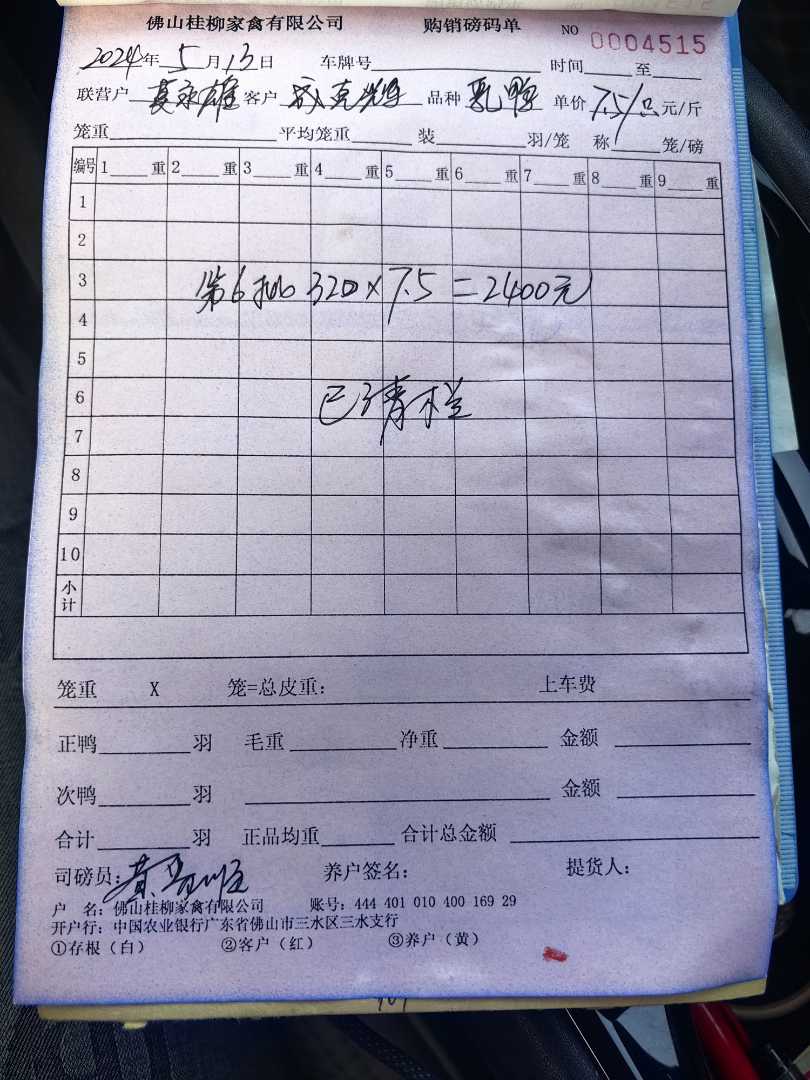 佛山桂柳家禽有限公司 购销磅码单 NO 0004515
2024年 5 月 13 日 车牌号 时间 至
联营户 永雄 客户 克辉 品种 乳鸭 单价 7.5/只 元/斤
笼重 平均笼重 装 羽/笼 称 笼/磅
编号 1 重 2 重 3 重 4 重 5 重 6 重 7 重 8 重 9 重
1
2
3
第6批 320×7.5=2400元
4
5
6
已清栏
7
8
9
10
小计
笼重 X 笼=总皮重： 上车费
正鸭 羽 毛重 净重 金额
次鸭 羽 金额
合计 羽 正品均重 合计总金额
司磅员： 养户签名： 提货人：
户 名：佛山桂柳家禽有限公司 账号：444 401 010 400 169 29
开户行：中国农业银行广东省佛山市三水区三水支行
①存根（白） ②客户（红） ③养户（黄）